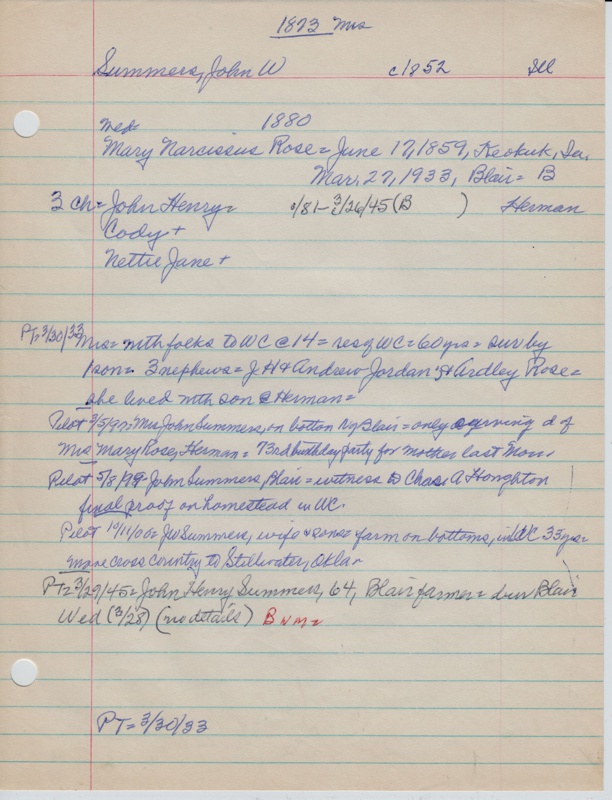 1873 Mrs
Summers, John W c1852 Ill
med= 1880
Mary Narcissus Rose= June 17, 1859, Keokuk, Ia.
Mar. 27, 1933, Blair= B
3 ch= John Henry= /81- 3/26/45 (B ) Herman
Cody +
Nettie Jane +
PT= 3/30/33 Mrs= with folks to WC @ 14= res of WC= 60 yrs= surv by
1 son= 3 nephews= J H & Andrew Jordan & Ardley Rose=
she lived with son @ Herman=
Pilot 3/5/97= Mrs John Summers, on bottom by Blair= only surviving d of
Mrs Mary Rose, Herman= 73rd birthday party for mother last Mon.
Pilot 5/8/ John Summers, Blair= witness to Chas. A Houghton
final proof on homestead in WC.
Pilot 10/11/00= JW Summers, wife & sons= farm on bottoms, in WC 35 yrs=
move cross country to Stillwater, Okla-
PT= 3/29/45= John Henry Summers, 64, Blair farmer= d Blair
Wed (3/28) (no details) B
PT= 3/30/33